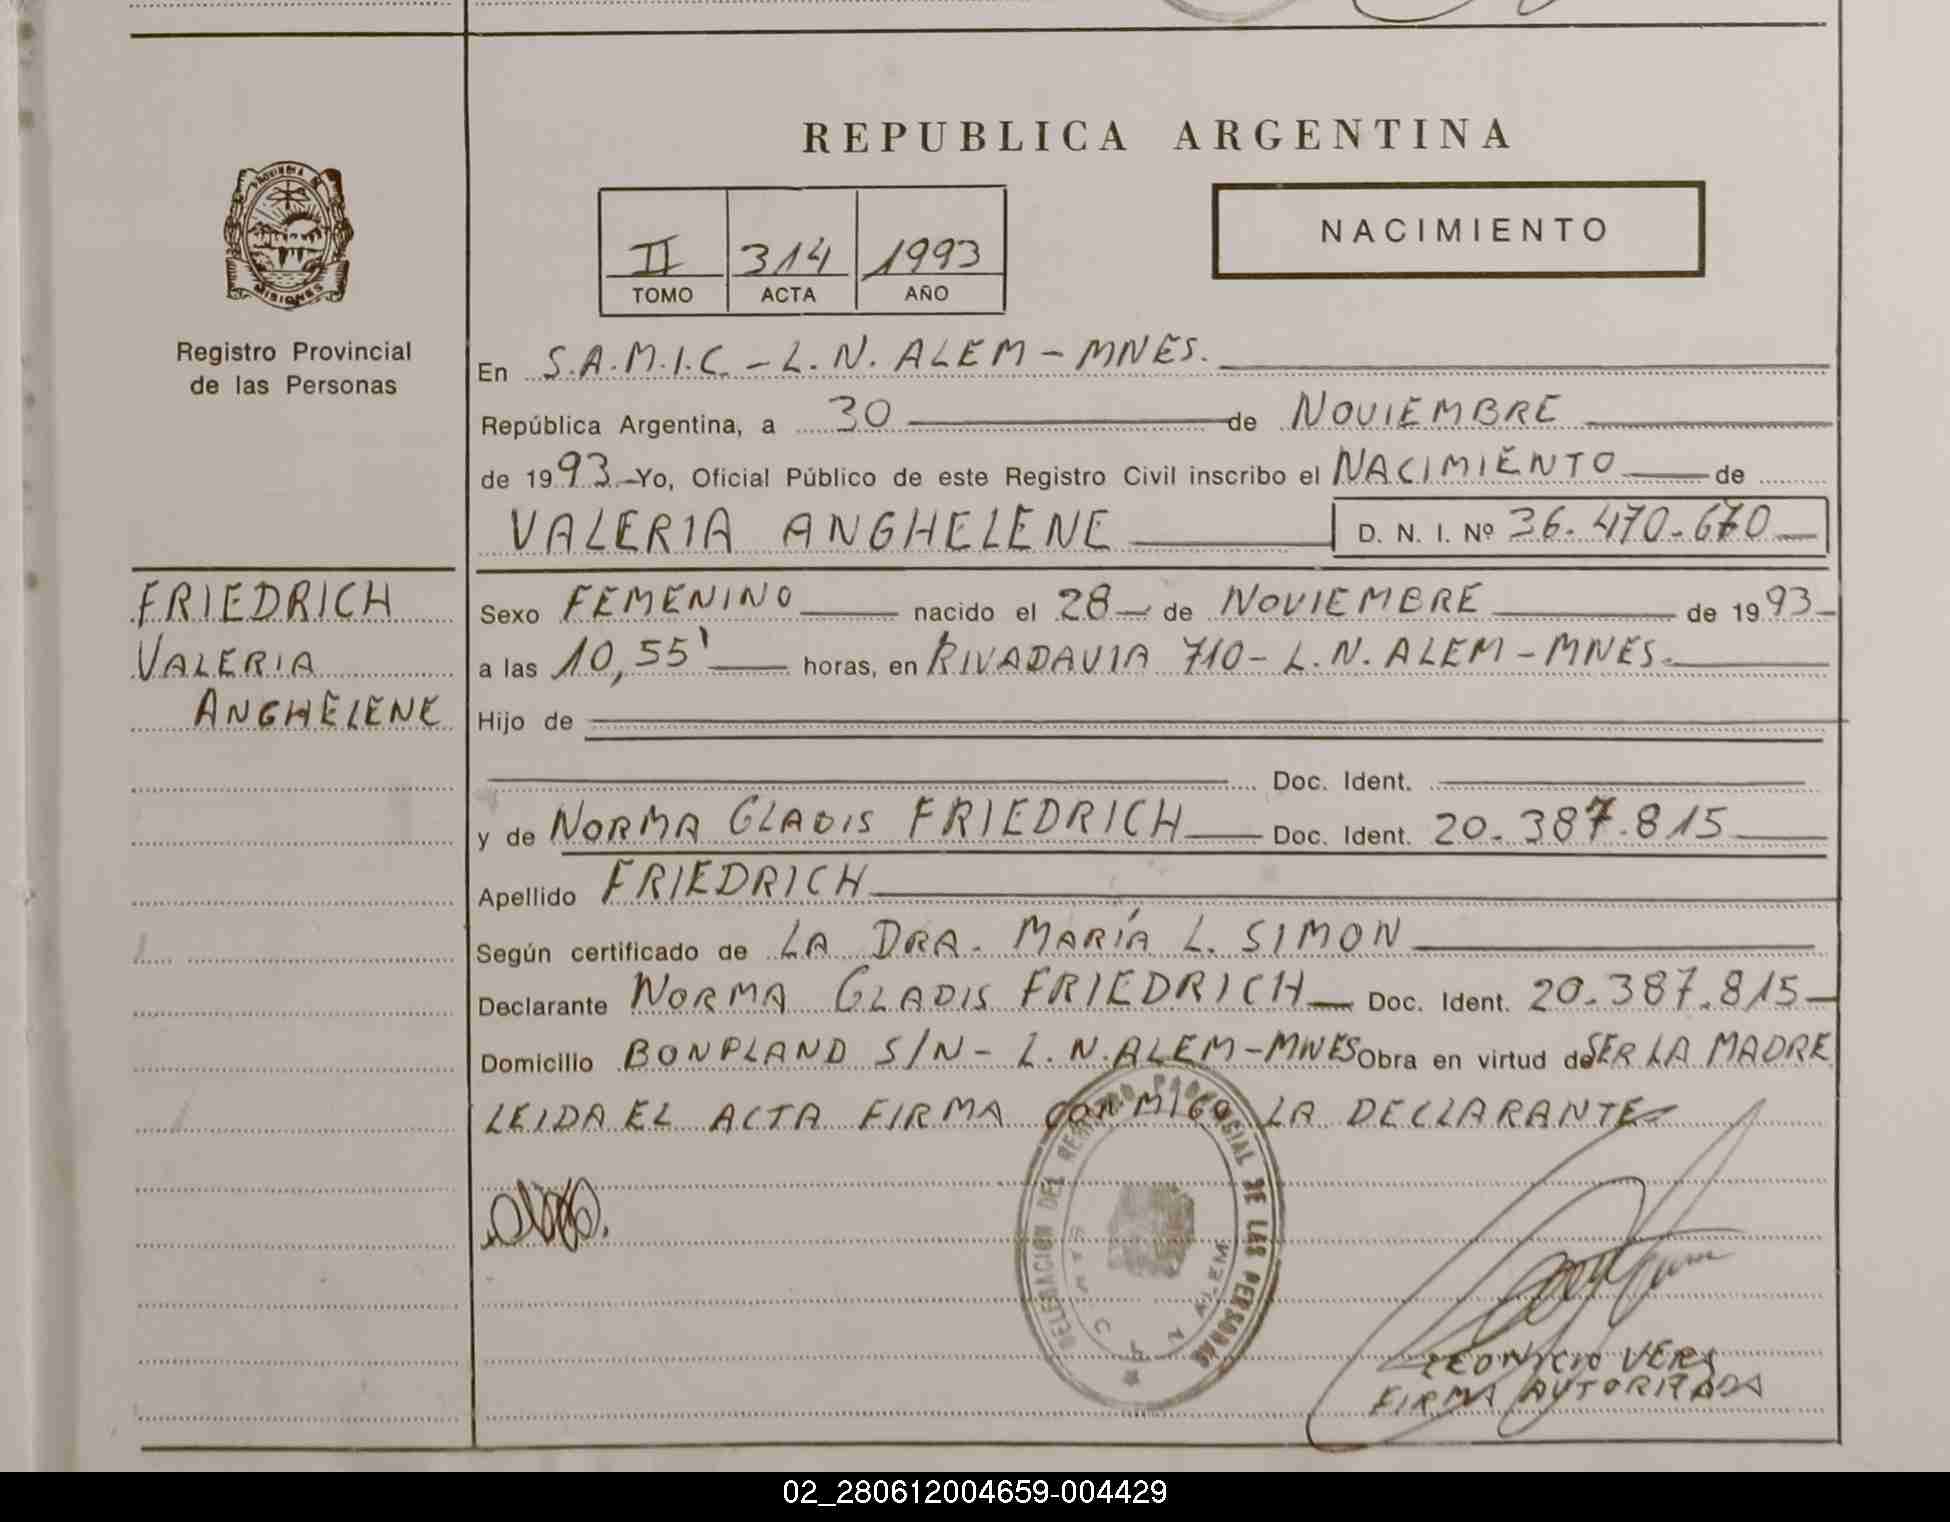 REPUBLICA ARGENTINA
NACIMIENTO
II 314 1993
TOMO ACTA AÑO
PROVINCIA DE
MISIONES
Registro Provincial
de las Personas
En S.A.M.I.C. - L. N. ALEM - MNES.
República Argentina, a 30 de NOVIEMBRE
de 1993 Yo, Oficial Público de este Registro Civil inscribo el NACIMIENTO de
VALERIA ANGHELENE D. N. I. Nº 36.470.670
FRIEDRICH
VALERIA
ANGHELENE
Sexo FEMENINO nacido el 28 de NOVIEMBRE de 1993
a las 10,55' horas, en RIVADAVIA 710 - L. N. ALEM - MNES.
Hijo de
Doc. Ident.
y de NORMA GLADIS FRIEDRICH Doc. Ident. 20.387.815
Apellido FRIEDRICH
Según certificado de LA DRA. MARÍA L. SIMON
Declarante NORMA GLADIS FRIEDRICH Doc. Ident. 20.387.815
Domicilio BONPLAND S/N - L. N. ALEM - MNES Obra en virtud de SER LA MADRE
LEIDA EL ACTA FIRMA CONMIGO LA DECLARANTE
DELEGACION DEL REGISTRO PROVINCIAL DE LAS PERSONAS
L N ALEM
FIRMA AUTORIZADA
02_280612004659-004429